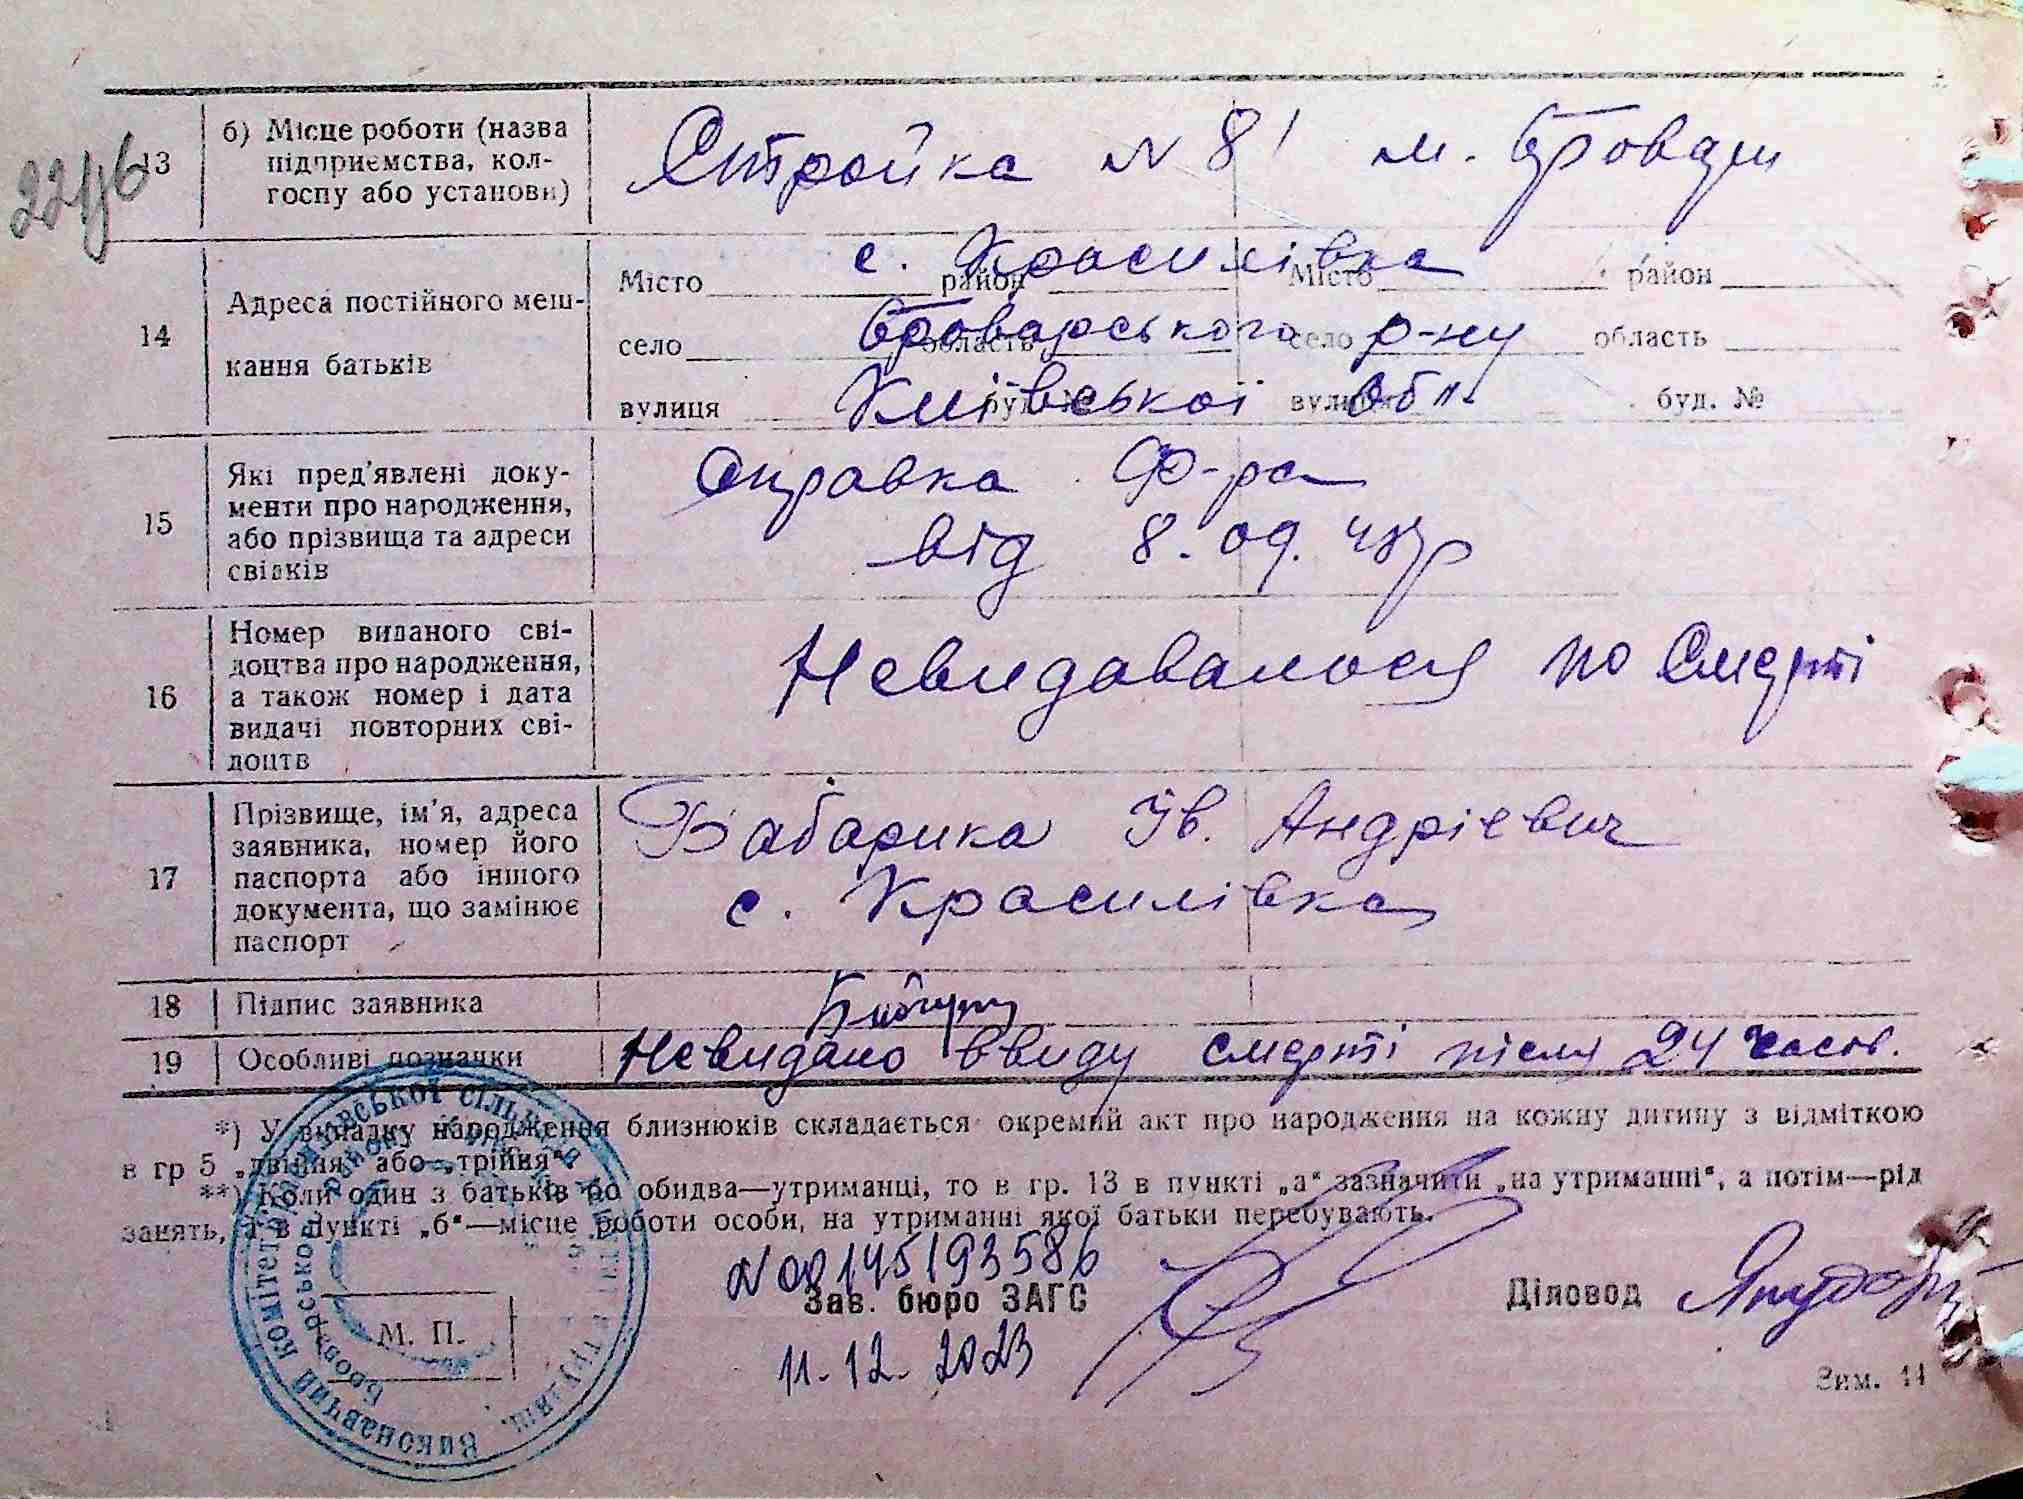 22
13
б) Місце роботи (назва
підприємства, кол-
госпу або установи)
Стройка № 81 м. Бровари
14
Адреса постійного меш-
кання батьків
с. Красилівка
Місто район Місто район
Броварського р-ну
село область село область
Київської обл.
вулиця буд. № вулиця буд. №
15
Які пред'явлені доку-
менти про народження,
або прізвища та адреси
свідків
Справка Ф-ра
від 8. 09.
16
Номер виданого сві-
доцтва про народження,
а також номер і дата
видачі повторних сві-
доцтв
Невидавалося по смерті
17
Прізвище, ім'я, адреса
заявника, номер його
паспорта або іншого
документа, що замінює
паспорт
Бабарика Ів. Андрієвич
с. Красилівка
18 Підпис заявника
19 Особливі позначки
Невидано ввиду смерті після 24 часов.
*) У випадку народження близнюків складається окремий акт про народження на кожну дитину з відміткою
в гр 5 „двійня" або „трійня".
**) Коли один з батьків або обидва—утриманці, то в гр. 13 в пункті „а" зазначити „на утриманні", а потім—рід
занять, а в пункті „б"—місце роботи особи, на утриманні якої батьки перебувають.
N 00145193586
Зав. бюро ЗАГС
Діловод
11. 12. 2023
М. П.
Виконавчий комітет сільської
Зим. 44